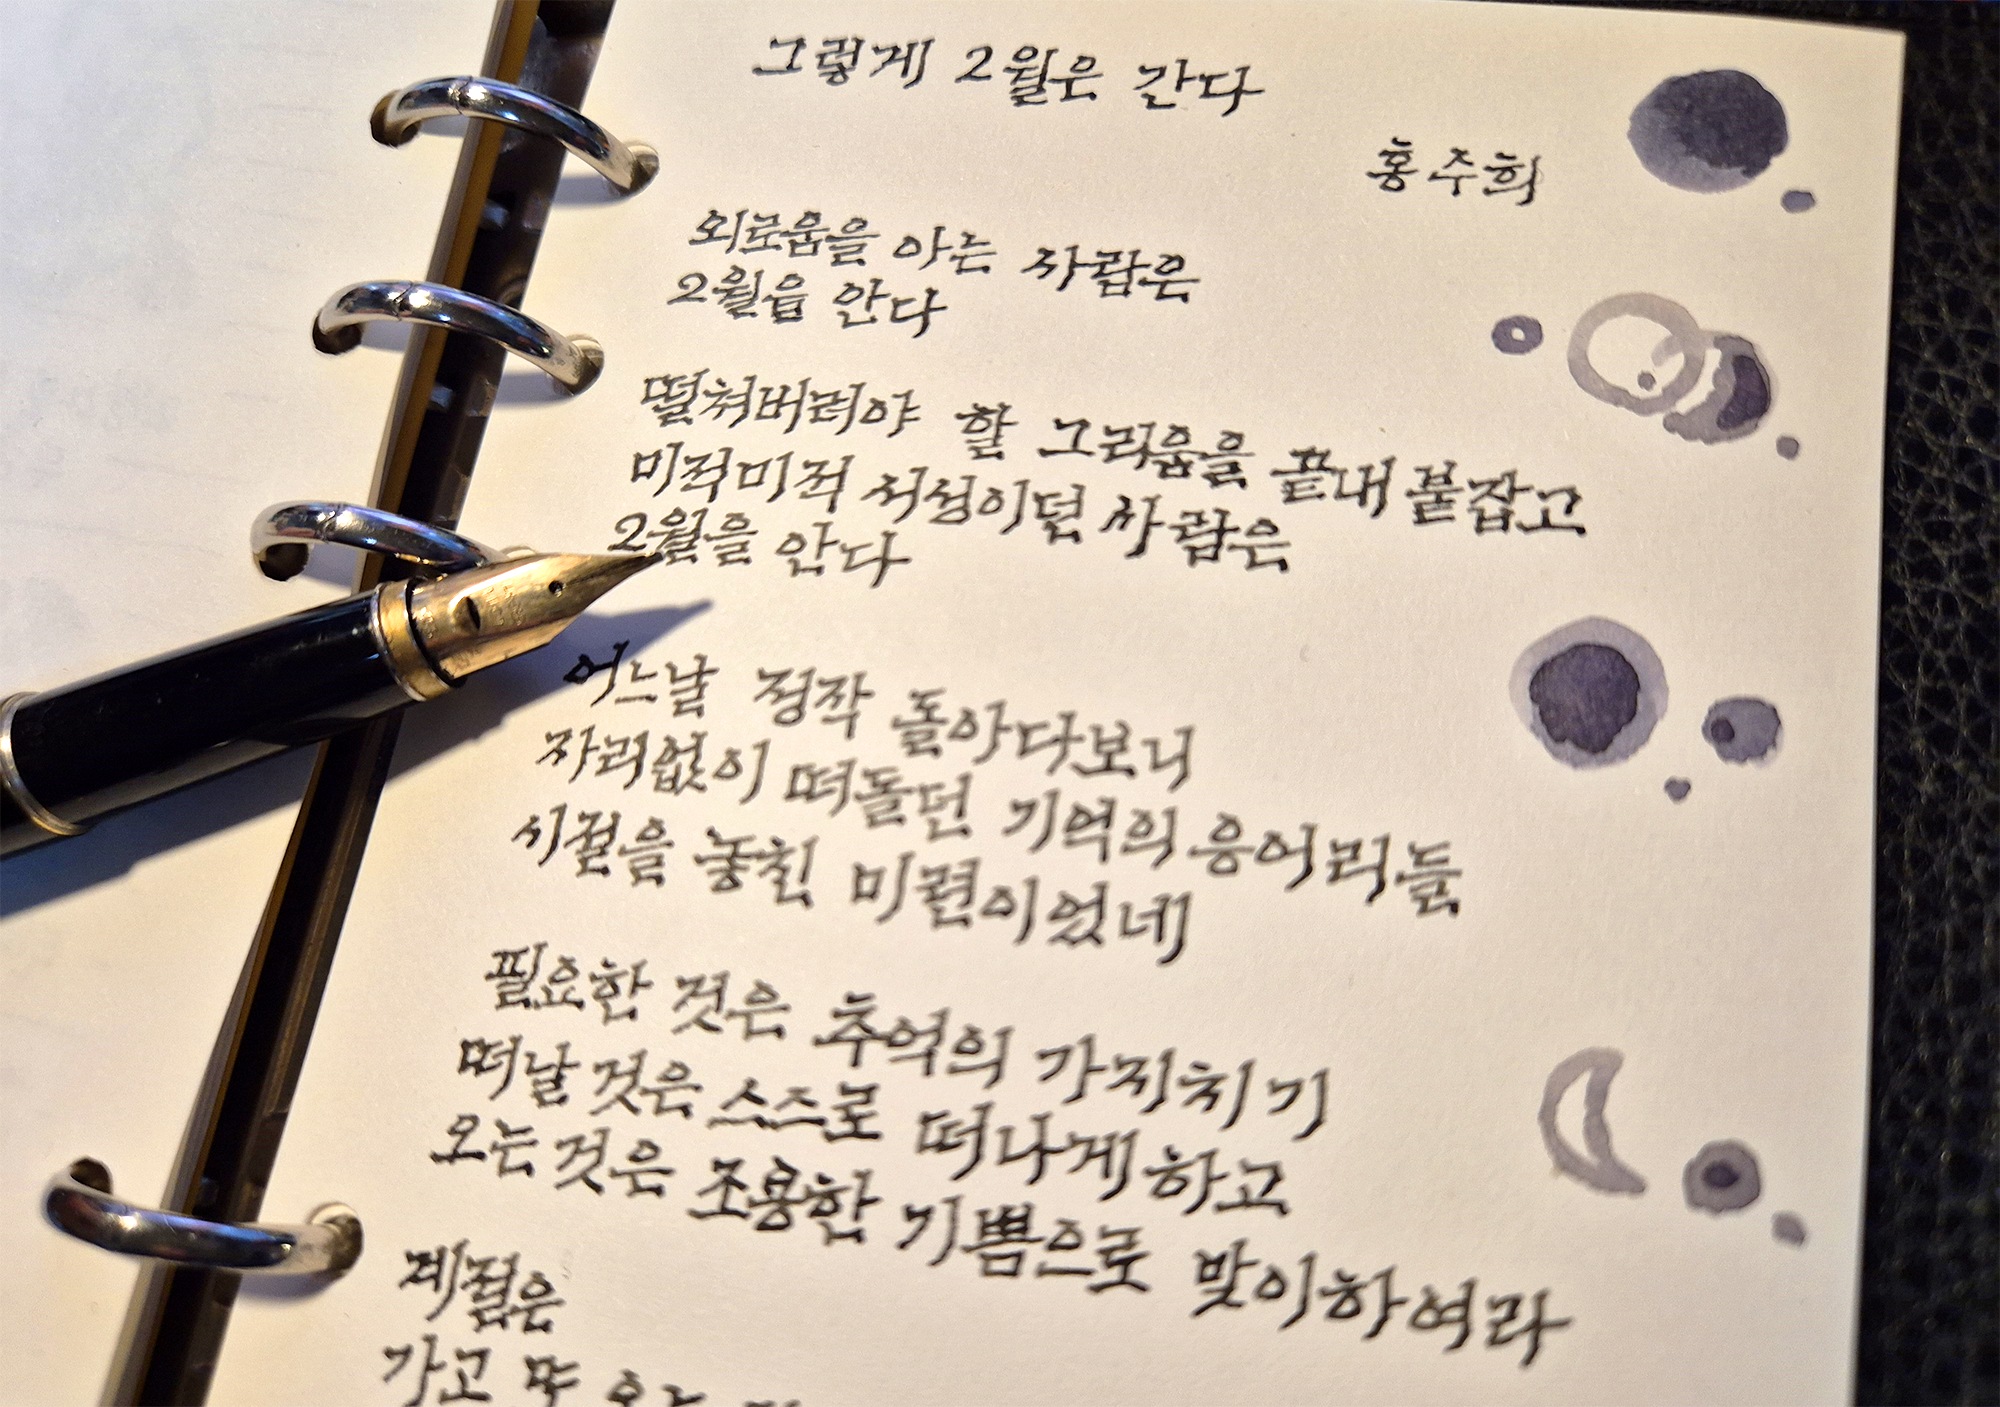 그렇게 2월은 간다
홍주희
외로움을 아는 사람은
2월읍 안다
떨쳐버려야 할 그리움을 끝내 붙잡고
미적미적 서성이던 사람은
2월을 안다
어느날 정작 돌아다보니
자리없이 떠돌던 기억의 응어리들
시절을 놓친 미련이었네
필요한 것은 추억의 가지치기
떠날 것은 스스로 떠나게 하고
오는 것은 조용한 기쁨으로 맞이하여라
계절은
가고 또